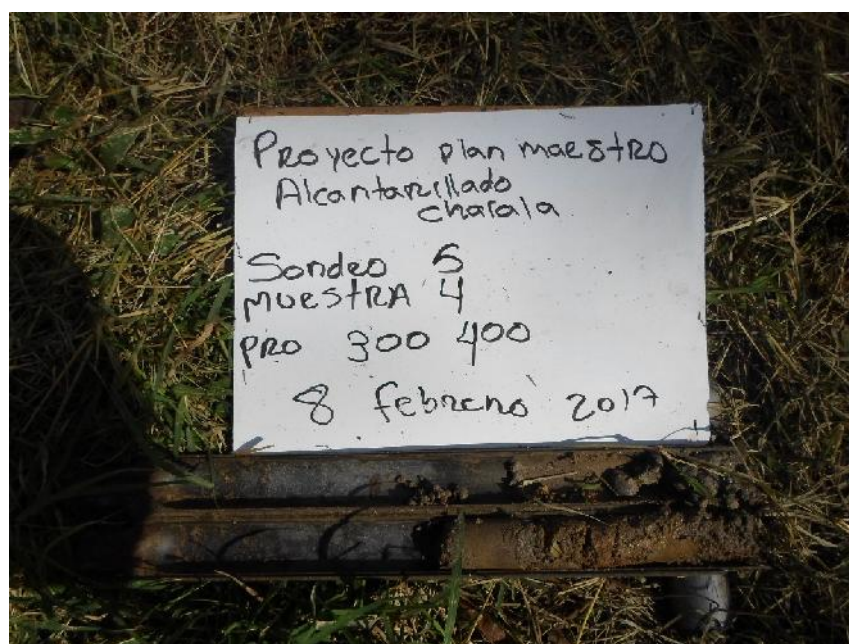 Proyecto plan maestro
Alcantarillado
charala
Sondeo 5
muestra 4
Pro 300 400
8 febrero 2017